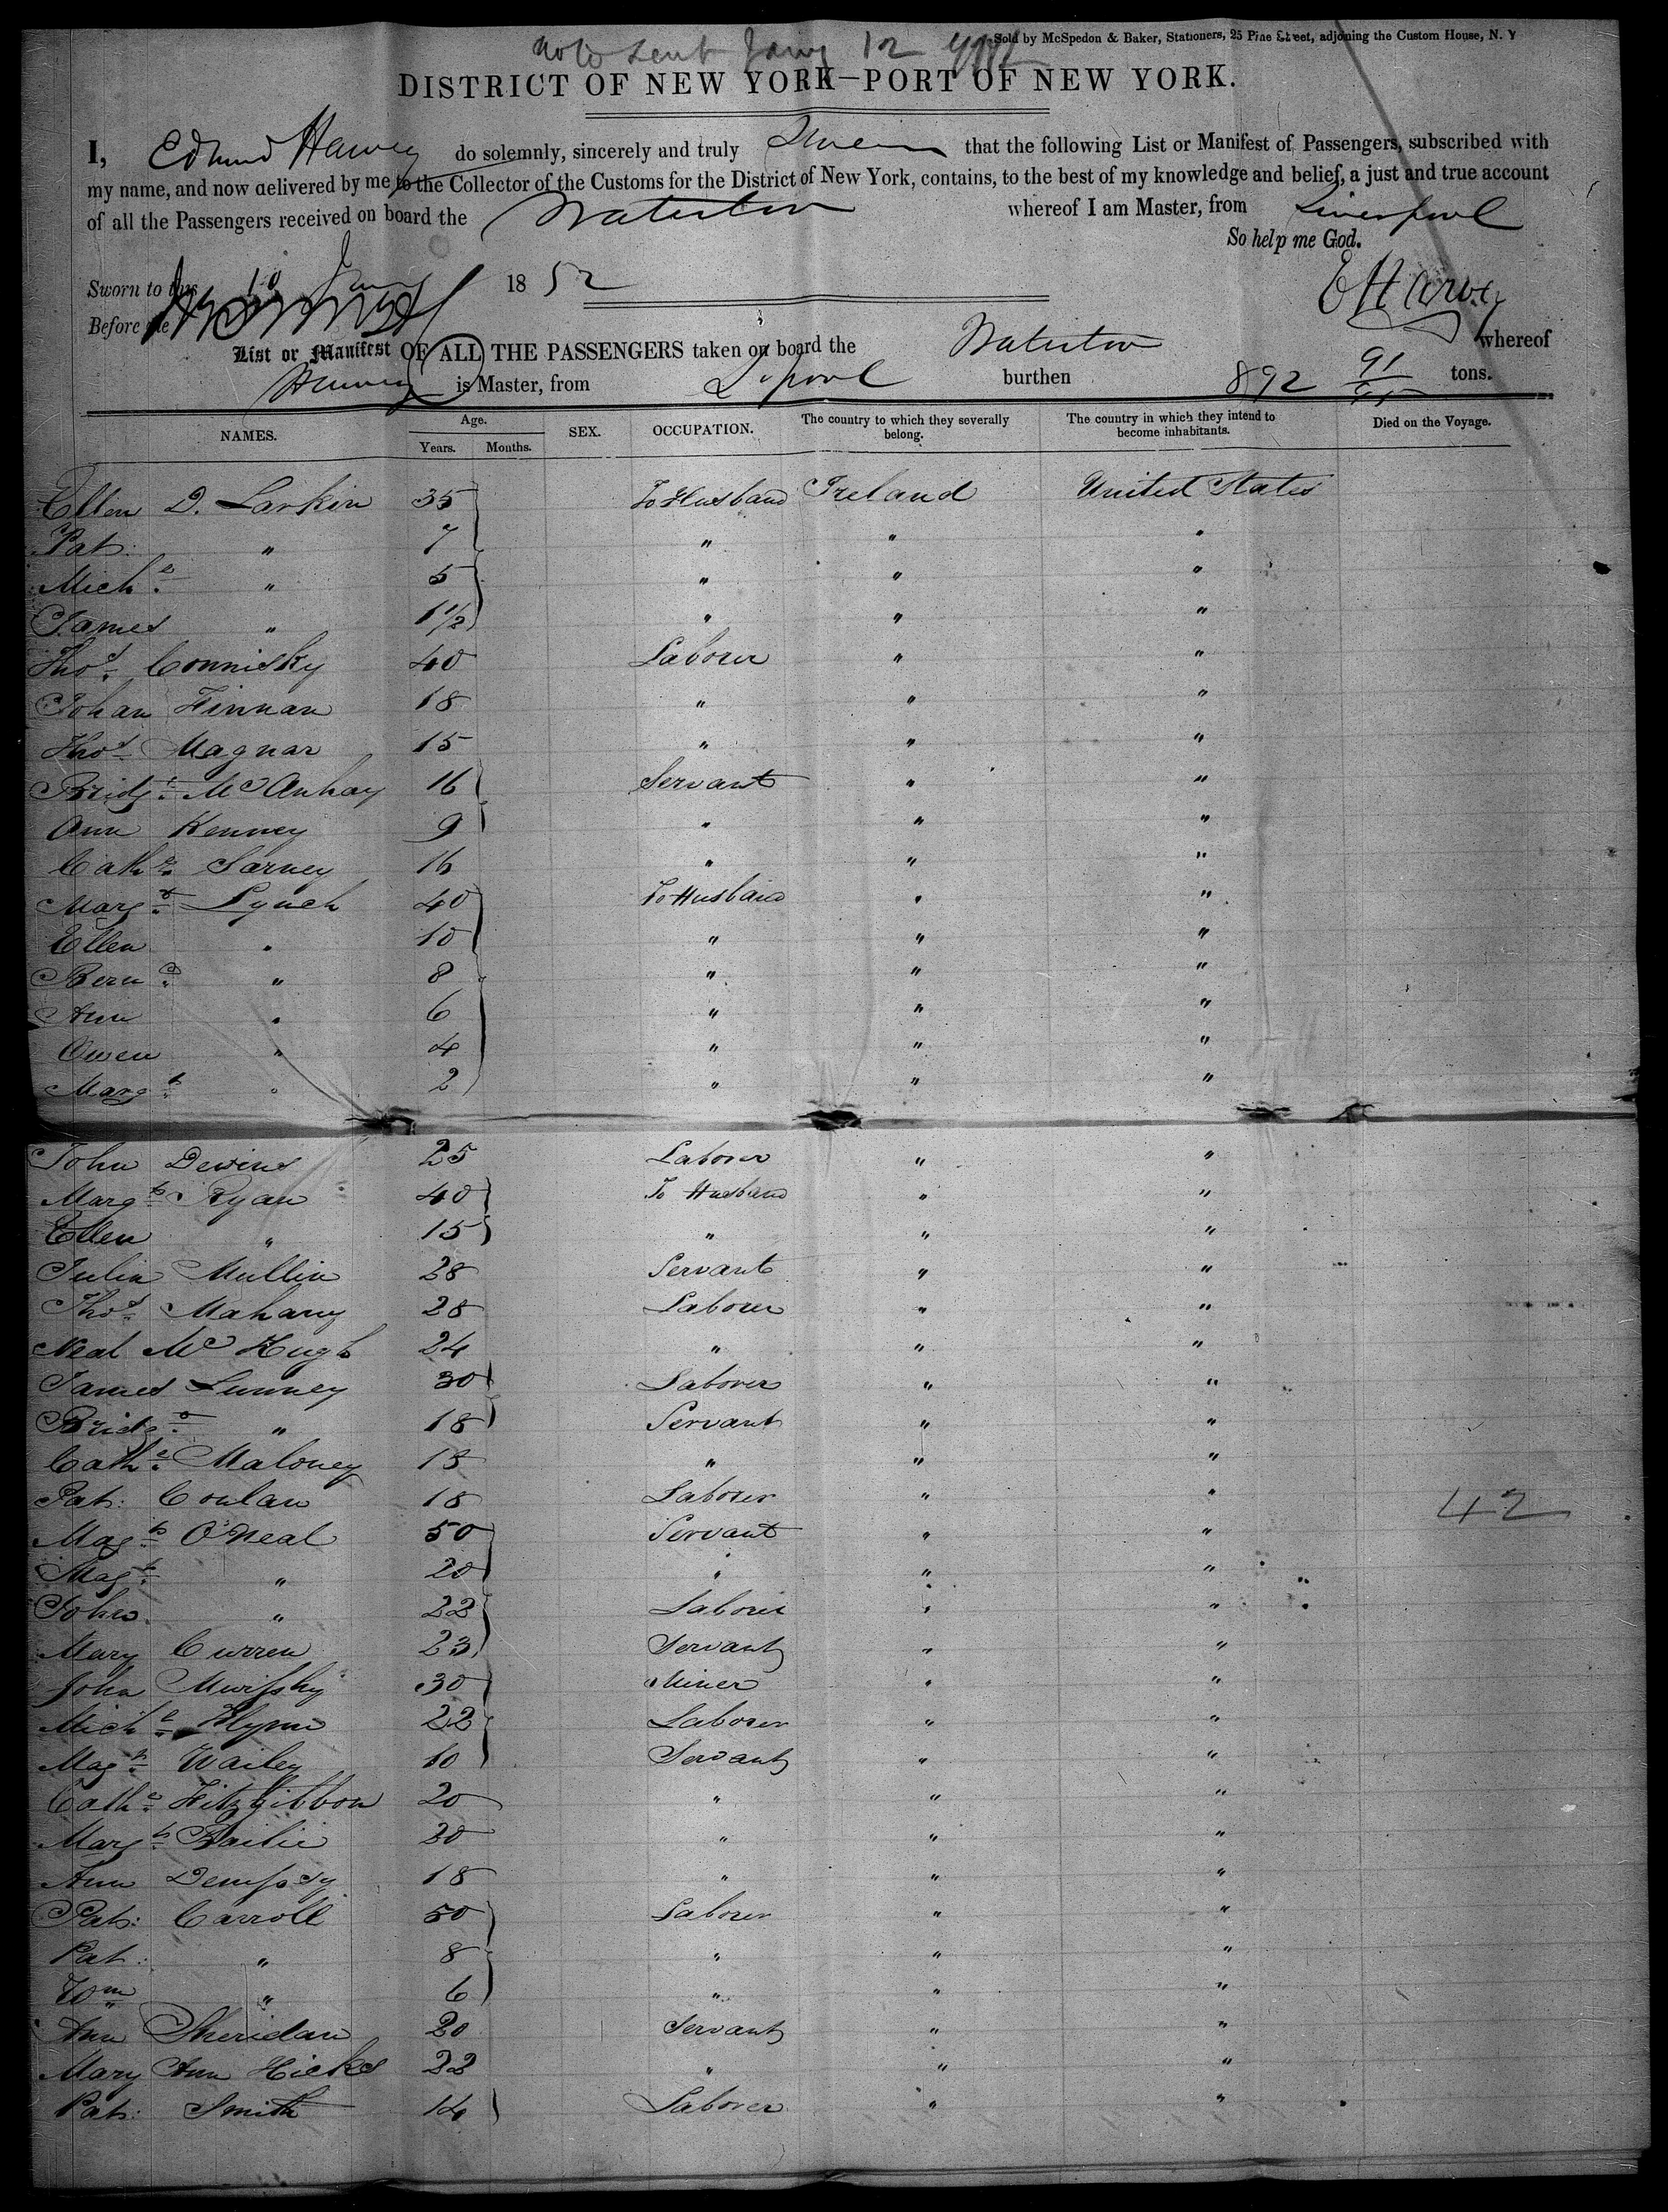 Sold by McSpedon & Baker, Stationers, 25 Pine Street, adjoining the Custom House, N. Y
Note sent Jany 12
DISTRICT OF NEW YORK—PORT OF NEW YORK.
I, Edmund Harvey do solemnly, sincerely and truly Swear that the following List or Manifest of Passengers, subscribed with
my name, and now delivered by me to the Collector of the Customs for the District of New York, contains, to the best of my knowledge and belief, a just and true account
of all the Passengers received on board the Waterloo whereof I am Master, from Liverpool
So help me God.
Sworn to this 10 Jany 1852
E Harvey
Before me
List or Manifest OF ALL THE PASSENGERS taken on board the Waterloo whereof
Harvey is Master, from Lpool burthen 892 91/95 tons.
NAMES. Age. Years. Months. SEX. OCCUPATION. The country to which they severally belong. The country in which they intend to become inhabitants. Died on the Voyage.
Ellen D. Larkin 35 To Husband Ireland United States
Pat: " 7 " " "
Michl. " 5 " " "
James " 1 1/2 " " "
Thos. Connisky 40 Laborer " "
Johan Finnan 18 " " "
Thos. Magnar 15 " " "
Bridgt. McAnhay 16 Servant " "
Ann Kenney 9 " " "
Cathe. Sarney 16 " " "
Margt. Lynch 40 To Husband " "
Ellen " 10 " " "
Bernd. " 8 " " "
Ann " 6 " " "
Owen " 4 " " "
Margt. " 2 " " "
John Devins 25 Laborer " "
Margt. Ryan 40 To Husband " "
Ellen " 15 " " "
Julia Mullin 28 Servant " "
Thos. Mahany 28 Laborer " "
Neal McHugh 24 " " "
James Lunney 30 Laborer " "
Bridgt. " 18 Servant " "
Cathe. Maloney 13 " " "
Pat: Conlan 18 Laborer " " 42
Magt. O'Neal 50 Servant " "
Magt. " 20 " " "
John " 22 Laborer " "
Mary Curren 23 Servant " "
John Murphy 30 Miner " "
Michl. Flynn 22 Laborer " "
Magt. Wailey 10 Servant " "
Cathe. Fitzgibbon 20 " " "
Margt. Bailie 20 " " "
Ann Dempsey 18 " " "
Pat: Carroll 50 Laborer " "
Pat: " 8 " " "
Wm " 6 " " "
Ann Sheridan 20 Servant " "
Mary Ann Hicks 22 " " "
Pat: Smith 14 Laborer " "